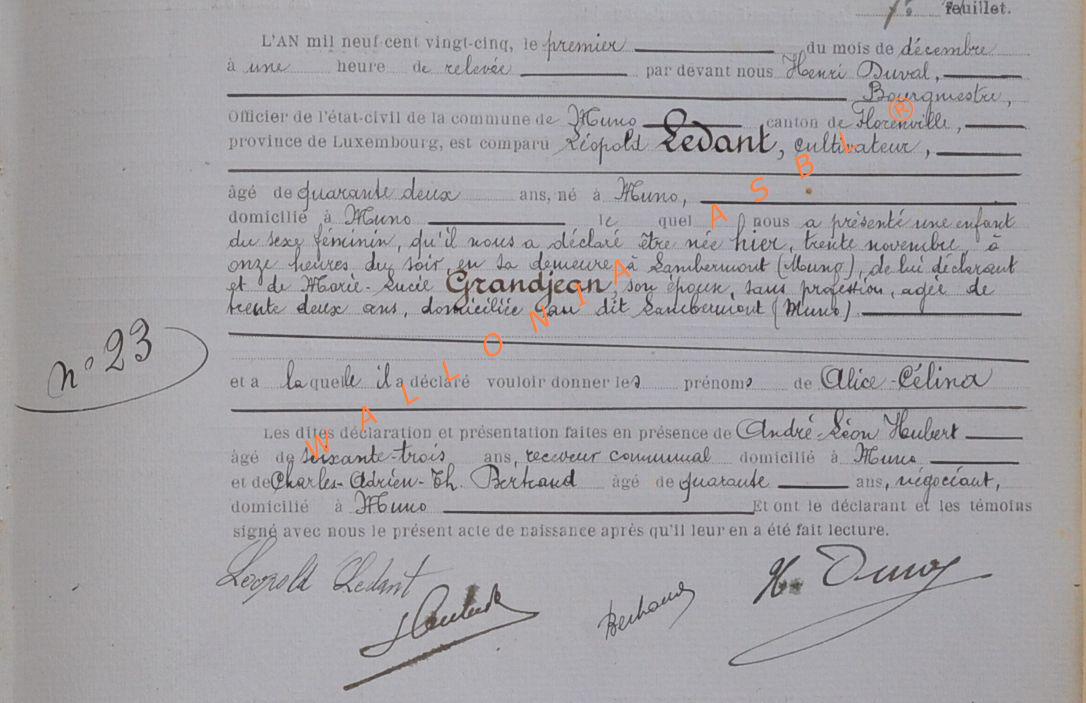 feuillet.
L'AN mil neuf cent vingt-cinq, le premier du mois de décembre
à une heure de relevée par devant nous Henri Duval,
Bourgmestre,
Officier de l'état-civil de la commune de Muno canton de Florenville,
province de Luxembourg, est comparu Léopold Ledant, cultivateur,
âgé de quarante deux ans, né à Muno,
domicilié à Muno le quel nous a présenté une enfant
du sexe féminin, qu'il nous a déclaré être née hier, trente novembre, à
onze heures du soir, en sa demeure, à Lambermont (Muno), de lui déclarant
et de Marie-Lucie Grandjean, son épouse, sans profession, agée de
trente deux ans, domiciliée au dit Lambermont (Muno).
n° 23
et a laquelle il a déclaré vouloir donner les prénoms de Alice-Célina
Les dites déclaration et présentation faites en présence de André-Léon Hubert
âgé de soixante-trois ans, receveur communal domicilié à Muno
et de Charles-Adrien-Th. Bertrand âgé de quarante ans, négociant,
domicilié à Muno Et ont le déclarant et les témoins
signé avec nous le présent acte de naissance après qu'il leur en a été fait lecture.
Léopold Ledant Bertrand H. Duval
WALLONIA ASBL ®